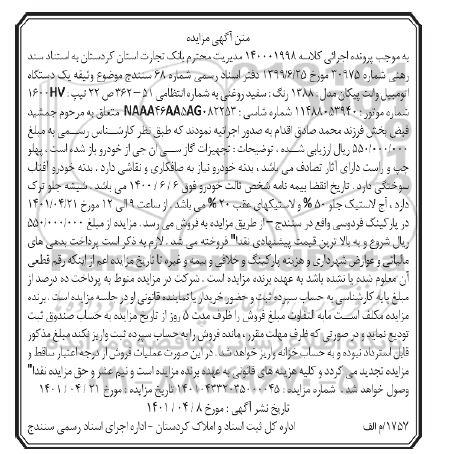 متن آگهی مزایده
به موجب پرونده اجرائی کلاسه ۱۴۰۰۰۱۹۹۸ مدیریت محترم بانک تجارت استان کردستان به استناد سند
رهنی شماره ۲۰۹۷۵ مورخ ۱۳۹۹/۶/۲۵ دفتر اسناد رسمی شماره ۶۸ سنندج موضوع وثیقه یک دستگاه
اتومبیل وانت پیکان مدل : ۱۳۸۸ رنگ : سفید روغنی به شماره انتظامی ۵۱ – ۳۶۲ ص ۲۲ تیپ : ۱۶۰۰HV
شماره موتور : ۱۱۴۸۸۰۵۳۹۴۰ شماره شاسی : NAAA۴۶AA۵AG۰۸۲۲۵۳ متعلق به مرحوم جمشید
فیض بخش فرزند محمد صادق اقدام به صدور اجرائیه نمودند که طبق نظر کارشناس رسمی به مبلغ
۵۵۰/۰۰۰/۰۰۰ ریال ارزیابی شده . توضیحات : تجهیزات گاز سی ان جی از خودرو باز شده است . پهلو
چپ و راست دارای آثار تصادف می باشد . بدنه خودرو نیاز به صافکاری و نقاشی دارد . بدنه خودرو آفتاب
سوختگی دارد . تاریخ انقضا بیمه نامه شخص ثالث خودرو فوق ۱۴۰۰/۶/۶ می باشد . شیشه جلو ترک
دارد . آج لاستیک جلو ۵۰ % و لاستیکهای عقب ۲۰ % می باشد . از ساعت ۹ الی ۱۲ مورخ ۱۴۰۱/۰۴/۲۱
در پارکینگ فردوسی واقع در سنندج – از طریق مزایده به فروش می رسد . مزایده از مبلغ ۵۵۰/۰۰۰/۰۰۰
ریال شروع و به بالا ترین قیمت پیشنهادی نقداً" فروخته می شد . لازم به ذکر است پرداخت بدهی های
مالیاتی و عوارض شهرداری و هزینه پارکینگ و خلافی و بیمه و غیره تا تاریخ مزایده اعم از اینکه رقم قطعی
آن معلوم شده یا نشده باشد به عهده برنده مزایده است . شرکت در مزایده منوط به پرداخت ده درصد از
مبلغ پایه کارشناسی به حساب سپرده ثبت و حضور خریدار یا نماینده قانونی او در جلسه مزایده است . برنده
مزایده مکلف است مابه التفاوت مبلغ فروش را ظرف مدت ۵ روز از تاریخ مزایده به حساب صندوق ثبت
تودیع نماید و در صورتی که ظرف مهلت مقرر ، مانده فروش را به حساب سپرده ثبت واریز نکند مبلغ مذکور
قابل استرداد نبوده و به حساب خزانه واریز خواهد شد . در این صورت عملیات فروش از درجه اعتبار ساقط و
مزایده تجدید می گردد و کلیه هزینه های قانونی به عهده برنده مزایده است و نیم عشر و حق مزایده نقداً"
وصول خواهد شد . شماره مزایده : ۱۴۰۱۰۴۳۳۲۰۳۵۰۰۰۰۴۵ تاریخ مزایده : مورخ ۲۱ / ۰۴ / ۱۴۰۱
تاریخ نشر آگهی : مورخ ۸ / ۰۴ / ۱۴۰۱
۱۷۵۷/م الف اداره کل ثبت اسناد و املاک کردستان – اداره اجرای اسناد رسمی سنندج